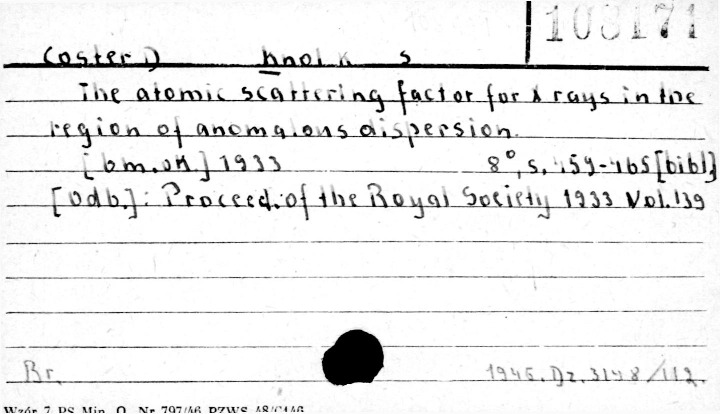 108171
Coster D Knol K s
The atomic scattering factor for X rays in the
region of anomalous dispersion.
[b.m.ok.] 1933 8°, s. 459-465 [bibl]
[Odb.]: Proceed. of the Royal Society 1933 Vol. 139
Br. 1946. Dz. 3148/112.
Wzór 7 PS Min. O. Nr 797/46 PZWS